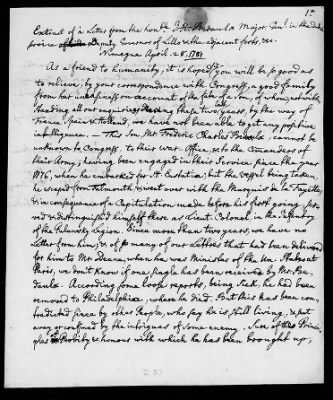 1st
Extract of a Letter from the honble J. H. Bedaulx Major Genl in the Service
Deputy Governor of Lillo & the adjacent forts, &c.
Nimegue April 28. 1781
As a friend to humanity, it is hoped you will be so good as
to relieve, by your correspondence with Congress, a good family
from her uneasiness on account of the fate of a Son, of whom, notwith-
standing all our enquiries, these two years, by the way of
France, Spain & Holland, we have not been able to get any positive
intelligence. — This Son, Mr Frederic Charles cannot be
unknown to Congress, to their War Office, & to the Commanders of
their Army, having been engaged in their Service since the year
1776, when he embarked for St. Eustatia; but the vessel being taken,
he escaped from Falmouth & went over with the Marquis de la Fayette,
& in consequence of a Capitulation made before his first going, ser-
ved & distinguish'd himself there as Lieut. Colonel, in the Infantry
of the Pulawsky Legion. Since more than two years, we have no
Letter from him, & of so many of our Letters that had been delivered
for him to Mr Deane, when he was Minister of the Un. States at
Paris, we don't know if one single has been received by Mr Be-
daulx. According some loose reports, being sick, he had been
removed to Philadelphia, where he died. But this has been con-
tradicted since by other People, who say he is still living, & put
away or confined by the intrigues of some enemy. Sure of the Princi-
ples of Probity & honour with which he has been brought up,